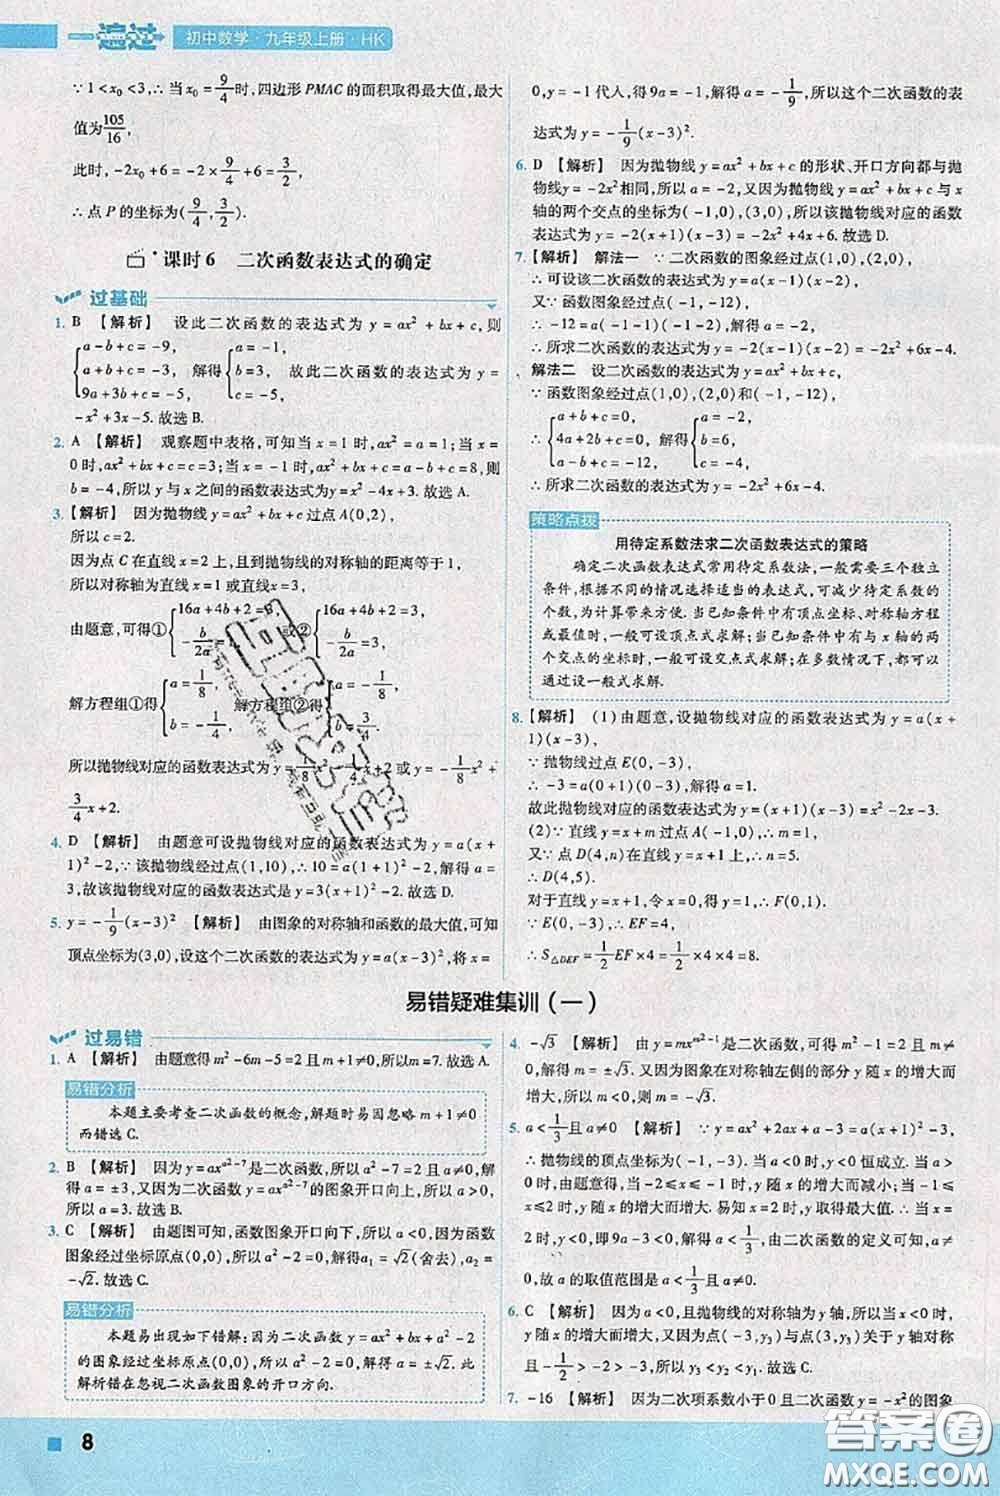 一遍过 初中数学·九年级上册·HK
∵1<x₀<3,∴当x₀=9/4时,四边形PMAC的面积取得最大值,最大
值为105/16,
此时,-2x₀+6=-2×9/4+6=3/2,
∴点P的坐标为(9/4,3/2).
课时6 二次函数表达式的确定
过基础
1. B 【解析】 设此二次函数的表达式为y=ax²+bx+c,则
{a-b+c=-9, a+b+c=-3, 9a+3b+c=-5, 解得{a=-1, b=3, c=-5, 故此二次函数的表达式为y=
-x²+3x-5.故选B.
2. A 【解析】 观察题中表格,可知当x=1时,ax²=a=1;当x=
0时,ax²+bx+c=c=3;当x=-1时,ax²+bx+c=a-b+c=8,则
b=-4,所以y与x之间的函数表达式为y=x²-4x+3.故选A.
3. 【解析】 因为抛物线y=ax²+bx+c过点A(0,2),
所以c=2.
因为点C在直线x=2上,且到抛物线的对称轴的距离等于1,
所以对称轴为直线x=1或直线x=3.
由题意,可得①{16a+4b+2=3, -b/2a=1, 或②{16a+4b+2=3, -b/2a=3,
解方程组①得{a=1/8, b=-1/4, 解方程组②得{a=-1/8, b=3/4.
所以抛物线对应的函数表达式为y=1/8x²-1/4x+2或y=-1/8x²+
3/4x+2.
4. D 【解析】 由题意可设抛物线对应的函数表达式为y=a(x+
1)²-2,∵该抛物线经过点(1,10),∴10=a(1+1)²-2,解得a=
3,故该抛物线对应的函数表达式是y=3(x+1)²-2.故选D.
5. y=-1/9(x-3)² 【解析】 由图象的对称轴和函数的最大值,可知
顶点坐标为(3,0),设这个二次函数的表达式为y=a(x-3)²,将x=
0,y=-1代人,得9a=-1,解得a=-1/9,所以这个二次函数的表
达式为y=-1/9(x-3)².
6. D 【解析】 因为抛物线y=ax²+bx+c的形状、开口方向都与抛
物线y=-2x²相同,所以a=-2,又因为抛物线y=ax²+bx+c与x
轴的两个交点的坐标为(-1,0),(3,0),所以该抛物线对应的函数
表达式为y=-2(x+1)(x-3)=-2x²+4x+6.故选D.
7. 【解析】 解法一 ∵二次函数的图象经过点(1,0),(2,0),
∴可设该二次函数的表达式为y=a(x-1)(x-2),
又∵函数图象经过点(-1,-12),
∴-12=a(-1-1)(-1-2),解得a=-2,
∴所求二次函数的表达式为y=-2(x-1)(x-2)=-2x²+6x-4.
解法二 设二次函数的表达式为y=ax²+bx+c,
∵函数图象经过点(1,0),(2,0)和(-1,-12),
∴{a+b+c=0, 4a+2b+c=0, a-b+c=-12, 解得{a=-2, b=6, c=-4,
∴所求二次函数的表达式为y=-2x²+6x-4.
策略点拨
用待定系数法求二次函数表达式的策略
确定二次函数表达式常用待定系数法,一般需要三个独立
条件,根据不同的情况选择适当的表达式,可减少待定系数
的个数,为计算带来方便.当已知条件中有顶点坐标、对称轴方程
或最值时,一般可设顶点式求解;当已知条件中有与x轴的两
个交点的坐标时,一般可设交点式求解;在多数情况下,都可以
通过设一般式求解.
8. 【解析】 (1)由题意,设抛物线对应的函数表达式为y=a(x+
1)(x-3),
∵抛物线过点E(0,-3),
∴-3=a(0+1)(0-3),解得a=1.
故此抛物线对应的函数表达式为y=(x+1)(x-3)=x²-2x-3.
(2)∵直线y=x+m过点A(-1,0),∴m=1,∴y=x+1.
又∵点D(4,n)在直线y=x+1上,∴n=5.
∴D(4,5).
对于直线y=x+1,令x=0,得y=1,∴F(0,1).
∵E(0,-3),∴EF=4,
∴S△DEF=1/2EF×4=1/2×4×4=8.
易错疑难集训(一)
过易错
1. A 【解析】 由题意得m²-6m-5=2且m+1≠0,所以m=7.故选A.
易错分析
本题主要考查二次函数的概念,解题时易因忽略m+1≠0
而错选C.
2. B 【解析】 因为y=ax^(a²-7)是二次函数,所以a²-7=2,解得
a=±3,又因为二次函数y=ax^(a²-7)的图象开口向上,所以a>0,
所以a=3.故选B.
3. C 【解析】 由题图可知,函数图象开口向下,所以a<0,又函数
图象经过坐标原点(0,0),所以a²-2=0,解得a₁=√2(舍去),a₂=
-√2.故选C.
易错分析
本题易出现如下错解:因为二次函数y=ax²+bx+a²-2
的图象经过坐标原点(0,0),所以a²-2=0,解得a=±√2.此
解析错在忽视二次函数图象的开口方向.
4. -√3 【解析】 由y=mx^(m²-1)是二次函数,可得m²-1=2且m≠
0,解得m=±√3.又因为图象在对称轴左侧的部分y随x的增大
而增大,所以m<0,即m=-√3.
5. a<1/3且a≠0 【解析】 ∵y=ax²+2ax+a-3=a(x+1)²-3,
∴抛物线的顶点坐标为(-1,-3).当a<0时,y<0恒成立.当a>
0时,由题意,得当x<-1时,y随x的增大而减小;当x>
-1时,y随x的增大而增大.易知当x=2时,y取得最大值.∴当x=
2时,y<0,即9a-3<0,解得a<1/3,由二次函数的定义可知,a≠
0,故a的取值范围是a<1/3且a≠0.
6. C 【解析】 因为a<0,且抛物线的对称轴为y轴,所以当x<0
时,y随x的增大而增大,又因为点(-3,y₃)与点(3,y₃)关于y轴对称,
且-3<-2<-1/2<0,所以y₃<y₂<y₁.故选C.
7. -16 【解析】 因为二次项系数小于0且二次函数y=-x²的图象
8
答案圈
MXQE.COM